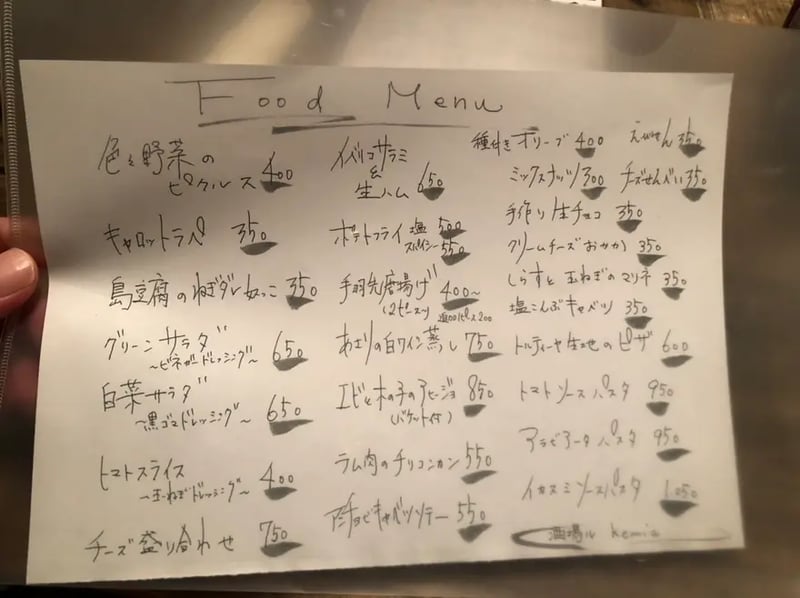 Food Menu
色々野菜の
ピクルス 400
キャロットラペ 350
島豆腐のねぎダレ奴っこ 350
グリーンサラダ 650
～ビネガードレッシング～
白菜サラダ 650
～黒ゴマドレッシング～
トマトスライス 400
～玉ねぎドレッシング～
チーズ盛り合わせ 750
イベリコサラミ
&
生ハム 650
ポテトフライ 塩 500
スパイシー 550
手羽先唐揚げ 400～
(2ピース)
あさりの白ワイン蒸し 750
エビと木の子のアヒージョ 850
(バケット付)
ラム肉のチリコンカン 550
アンチョビキャベツソテー 550
種付きオリーブ 400
ミックスナッツ 300
手作り生チョコ 350
クリームチーズおかか 350
しらすと玉ねぎのマリネ 350
塩こんぶキャベツ 350
トルティーヤ生地のピザ 600
トマトソースパスタ 950
アラビアータパスタ 950
イカスミソースパスタ 1.050
えびせん 350
チーズせんべい 350
酒場ル kemia